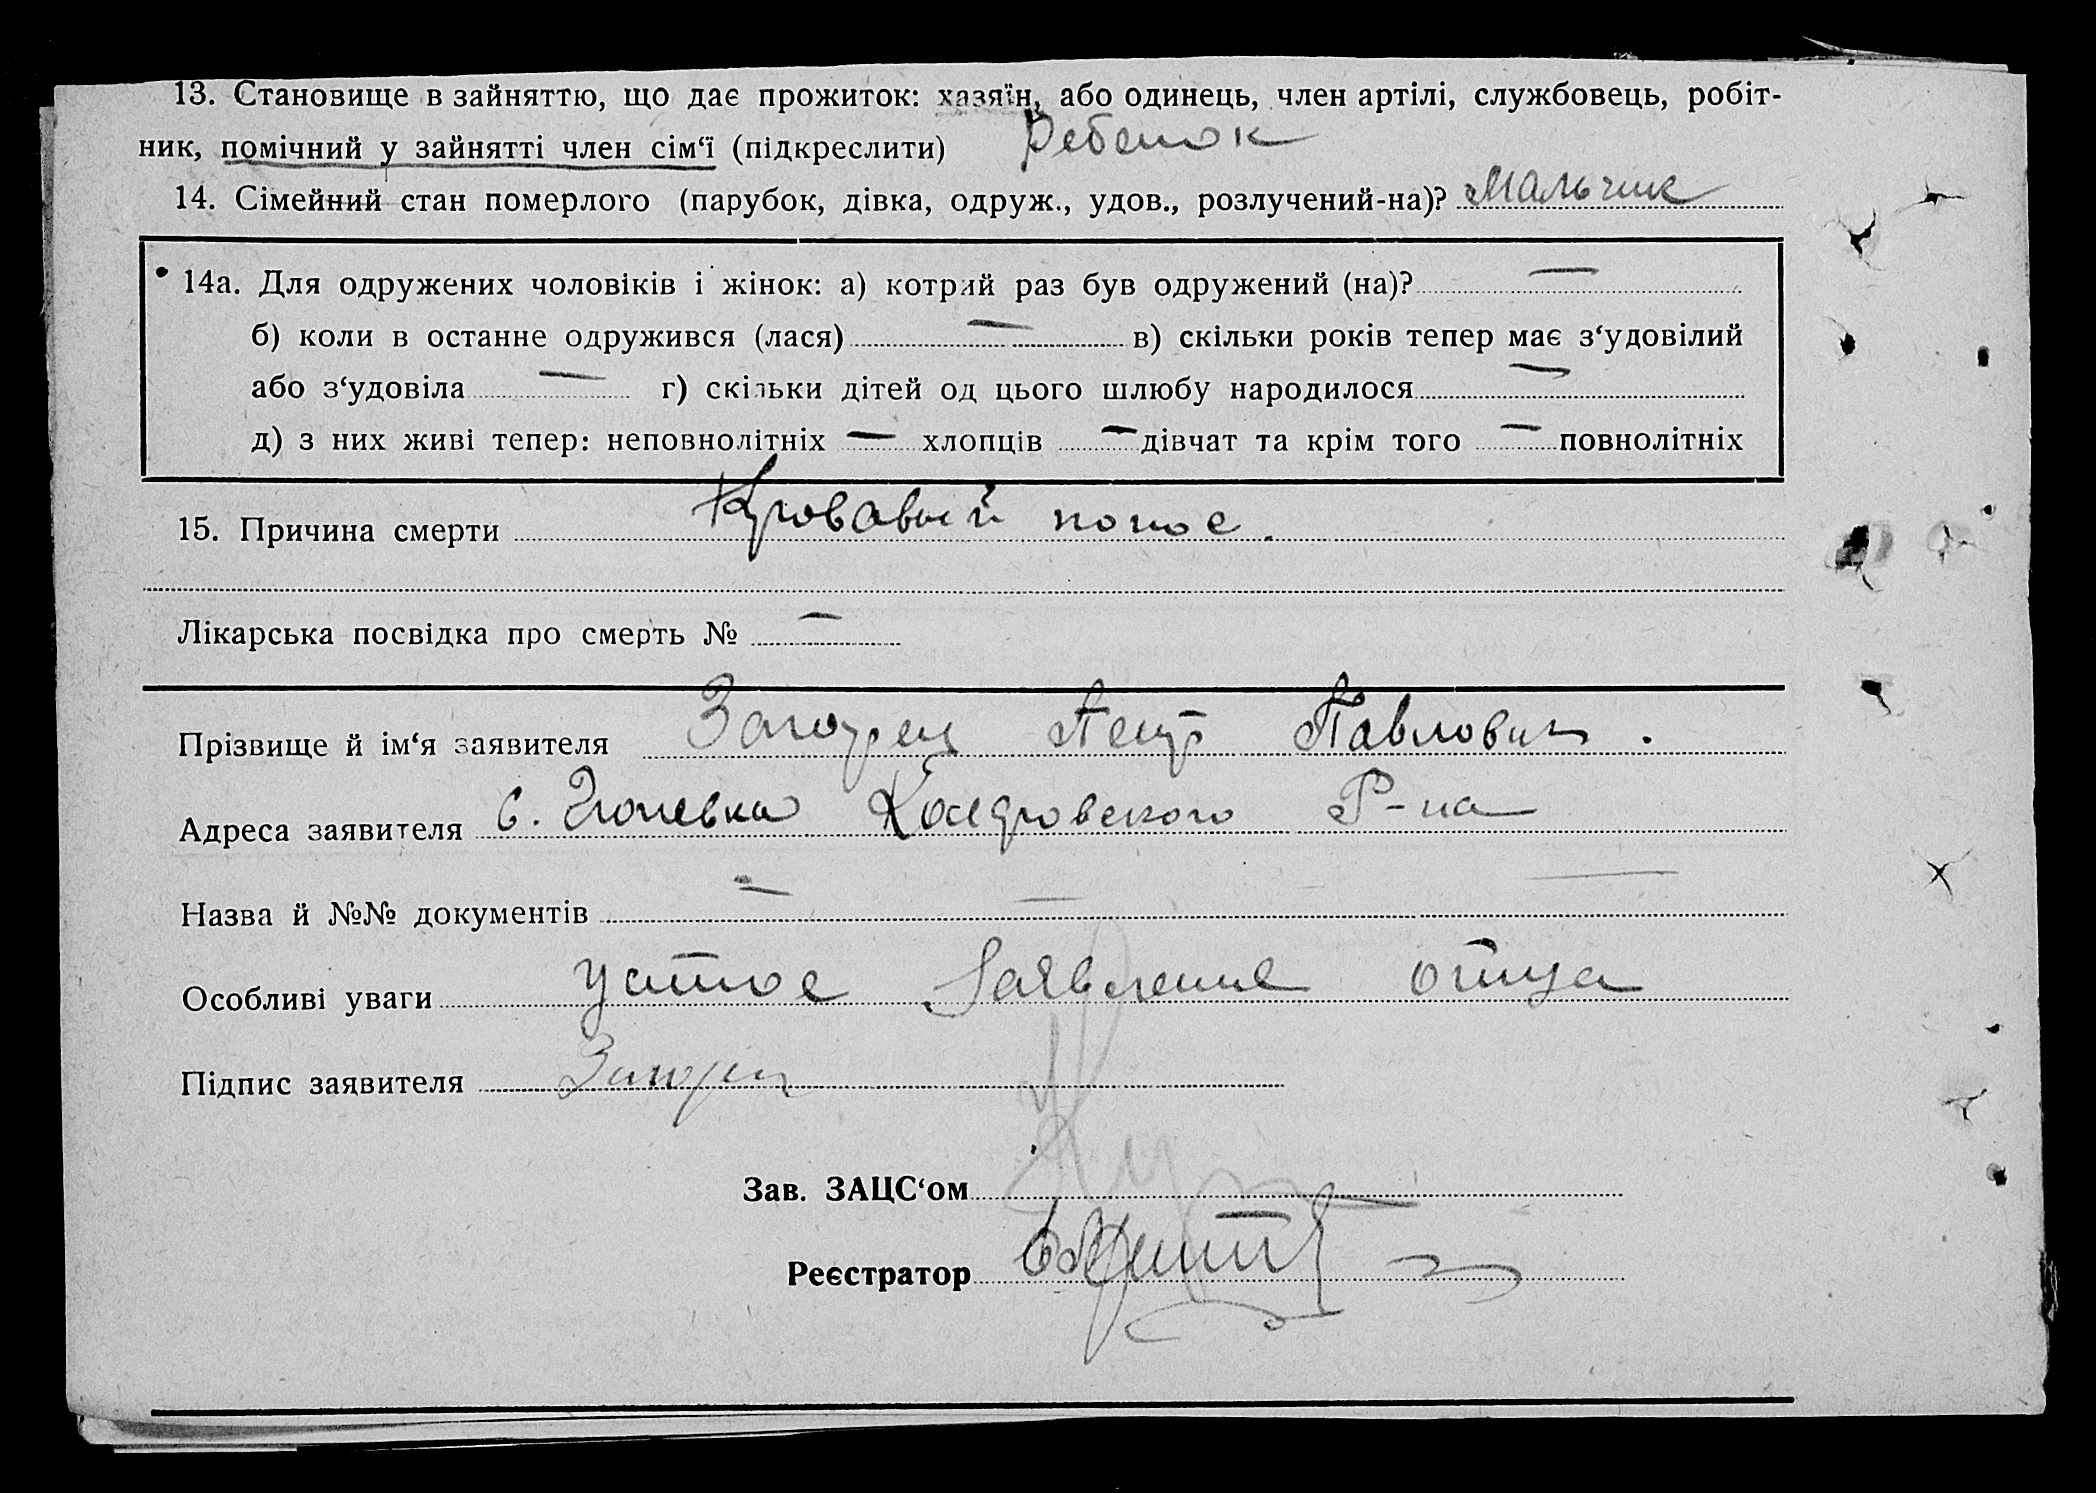 13. Становище в зайняттю, що дає прожиток: хазяїн, або одинець, член артілі, службовець, робіт-
ник, помічний у зайнятті член сім‘ї (підкреслити) Ребенок
14. Сімейний стан померлого (парубок, дівка, одруж., удов., розлучений-на)? Мальчик
14а. Для одружених чоловіків і жінок: а) котрий раз був одружений (на)? —
б) коли в останне одружився (лася) — в) скільки років тепер має з‘удовілий
або з‘удовіла — г) скільки дітей од цього шлюбу народилося —
д) з них живі тепер: неповнолітніх — хлопців — дівчат та крім того — повнолітніх
15. Причина смерти Кровавый понос.
Лікарська посвідка про смерть № —
Прізвище й ім‘я заявителя Загорец Петр Павлович.
Адреса заявителя с. Р-на
Назва й №№ документів — — —
Особливі уваги устное заявление отца
Підпис заявителя Загорец
Зав. ЗАЦС‘ом
Реєстратор